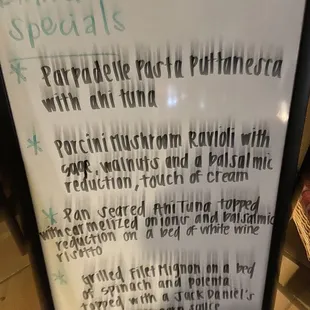 Specials
* Parpadelle Pasta Puttanesca
with ahi tuna
* Porcini Mushroom Ravioli with
sage, walnuts and a balsalmic
reduction, touch of cream
* Pan seared Ahi Tuna topped
with carmelized onions and balsalmic
reduction on a bed of white wine
risotto
* Grilled Filet Mignon on a bed
of spinach and polenta
topped with a Jack Daniel's
sauce